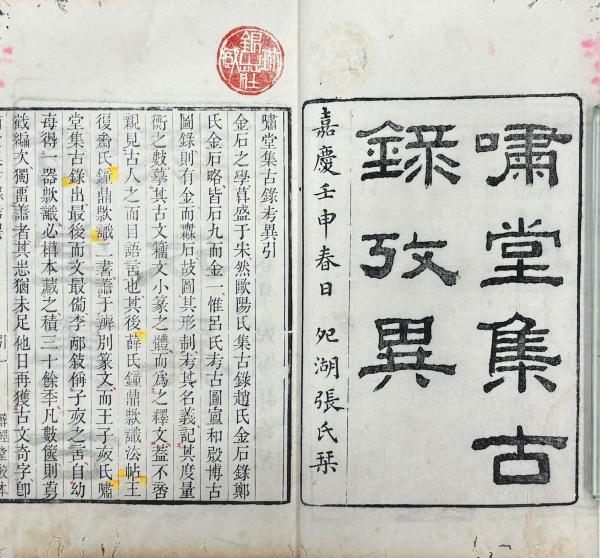 嘯堂集古
錄攷異
嘉慶壬申春日 夗湖張氏栞
嘯堂集古錄考異引
金石之學莫盛于宋然歐陽氏集古錄趙氏金石錄鄭
氏金石略皆石九而金一惟呂氏考古圖宣和殿博古
圖錄則有金而橆石故圖其形制考其名義記其度量
衡之數摹其古文籒文小篆之體而爲之釋文葢不啻
親見古人之面目語言也其後薛氏鐘鼎款識法帖王
復齋氏鐘鼎款識二書譱于辨別篆文而王子弁氏嘯
堂集古錄出最後而文最備李邴敘稱子弁之言自幼
每得一器款識必榻本藏之積三十餘季凡數篋則剪
截編次獨畱譱者其志猶未足他日再獲古文奇字卽
引一